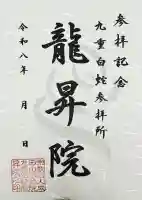 参拝記念
九重白蛇参拝所
龍昇院
令和八年　月　日